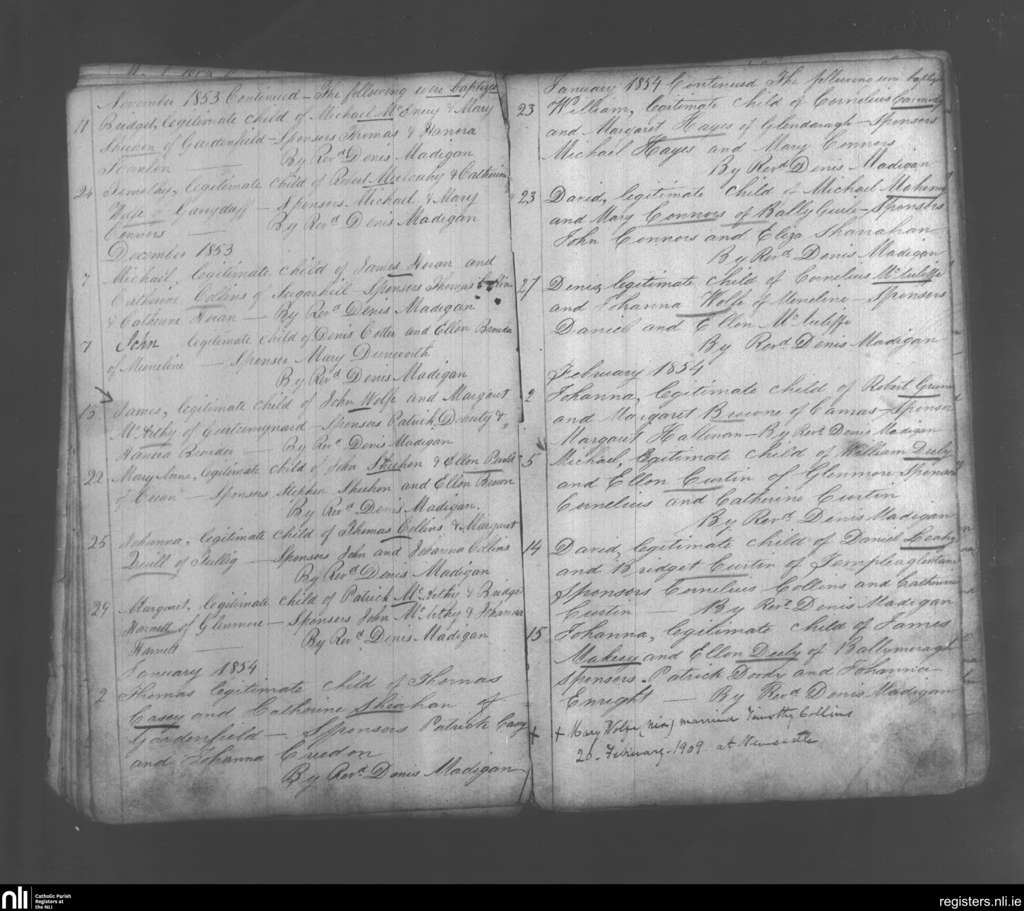 November 1853 Continued – The following were baptized
11 Bridget, legitimate child of Michael McEnery & Mary
of Gardenfield – Sponsors Thomas & Hanora
Scanlon
By Revd. Denis Madigan
24 legitimate child of & Catherine
Wolfe – Sponsors Michael & Mary
Connors
By Revd. Denis Madigan
December 1853
7 Michael legitimate child of James Horan and
Catherine Collins of – Sponsors Thomas
& Catherine Horan – By Revd Denis Madigan
7 John legitimate child of Denis and Ellen
of – Sponsor Mary
By Revd Denis Madigan
15 James, legitimate child of John Wolfe and Margaret
McArthy of – Sponsors Patrick &
Hanora – By Revd. Denis Madigan
22 Mary Jane, legitimate child of John Sheehan & Ellen
of – Sponsors Stephen Sheehan and Ellen
By Revd Denis Madigan.
25 Johanna, legitimate child of Thomas Collins & Margaret
Quill of – Sponsors John and Johanna Collins
By Revd Denis Madigan
24 Margaret, legitimate child of Patrick McArthy & Bridget
Harnett of Glenmore – Sponsors John McArthy & Johanna
Harnett
By Revd. Denis Madigan
January 1854
2 Thomas legitimate child of Thomas
Casey and Catherine Sheahan of
Gardenfield – Sponsors Patrick Casey
and Johanna Creedon
By Revd. Denis Madigan
January 1854 Continued The following were baptized
23 William, legitimate child of Cornelius
and Margaret Hayes of Glendaragh – Sponsors
Michael Hayes and Mary Connors
By Revd Denis Madigan
23 David, legitimate child of Michael Mahony
and Mary Connors of – Sponsors
John Connors and Eliza Shanahan
By Revd Denis Madigan
27 Denis, legitimate child of Cornelius McAuliffe
and Johanna Wolfe of – Sponsors
Daniel and Ellen McAuliffe
By Revd Denis Madigan
February 1854
2 Johanna, legitimate child of Robert
and Margaret of Camas – Sponsor
Margaret Hallinan – By Revd. Denis Madigan
5 Michael, legitimate child of William
and Ellen Curtin of Glenmore Sponsors
Cornelius and Catherine Curtin
By Revd Denis Madigan
14 David, legitimate child of Daniel Leahy
and Bridget Curtin of Templeaglentan
Sponsors Cornelius Collins and Catherine
Curtin – By Revd. Denis Madigan
15 Johanna, legitimate child of James
and Ellen of
Sponsors Patrick and Johanna
Enright – By Revd Denis Madigan
+ + Mary Wolfe, married Timothy Collins
20. February. 1909. at Newcastle
nli Catholic Parish
Registers at
the NLI
registers.nli.ie